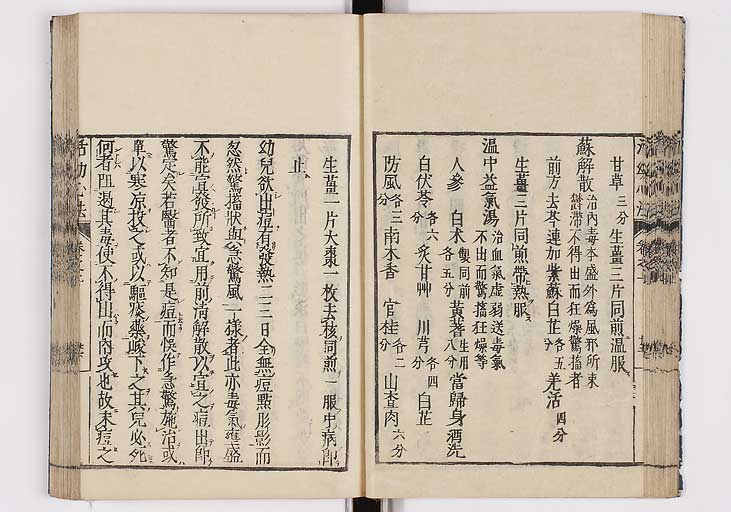 甘草三分 生薑三片同煎温服
蘇解散 治內毒本盛外為風邪所束
鬱滯不得出而狂燥驚搐者
前方去芩連加紫蘇白芷各五分羌活四分
生薑三片同煎帶熱服
温中益氣湯 治血氣虛弱送毒氣
不出而驚搐狂燥等
人參 白术製同前各五分黃蓍生用八分當歸身酒洗
白伏苓各六分炙甘艸 川芎各四分白芷
防風各三分南木香 官桂各二分山查肉六分
生薑一片大棗一枚去核同煎一服中病即
止
幼兒欲出痘有發熱二三日全無痘點形影而
忽然驚搐狀與急驚風一樣者此亦毒氣壅盛
不能宣發所致宜用前清解散以宣之痘出即
驚定矣若醫者不知是痘而悞作急驚施治或
單以寒凉投之或以驅痰藥瞭下之其兒必死
何者阻遏其毒使不得出而內攻也故未痘之
活幼心法